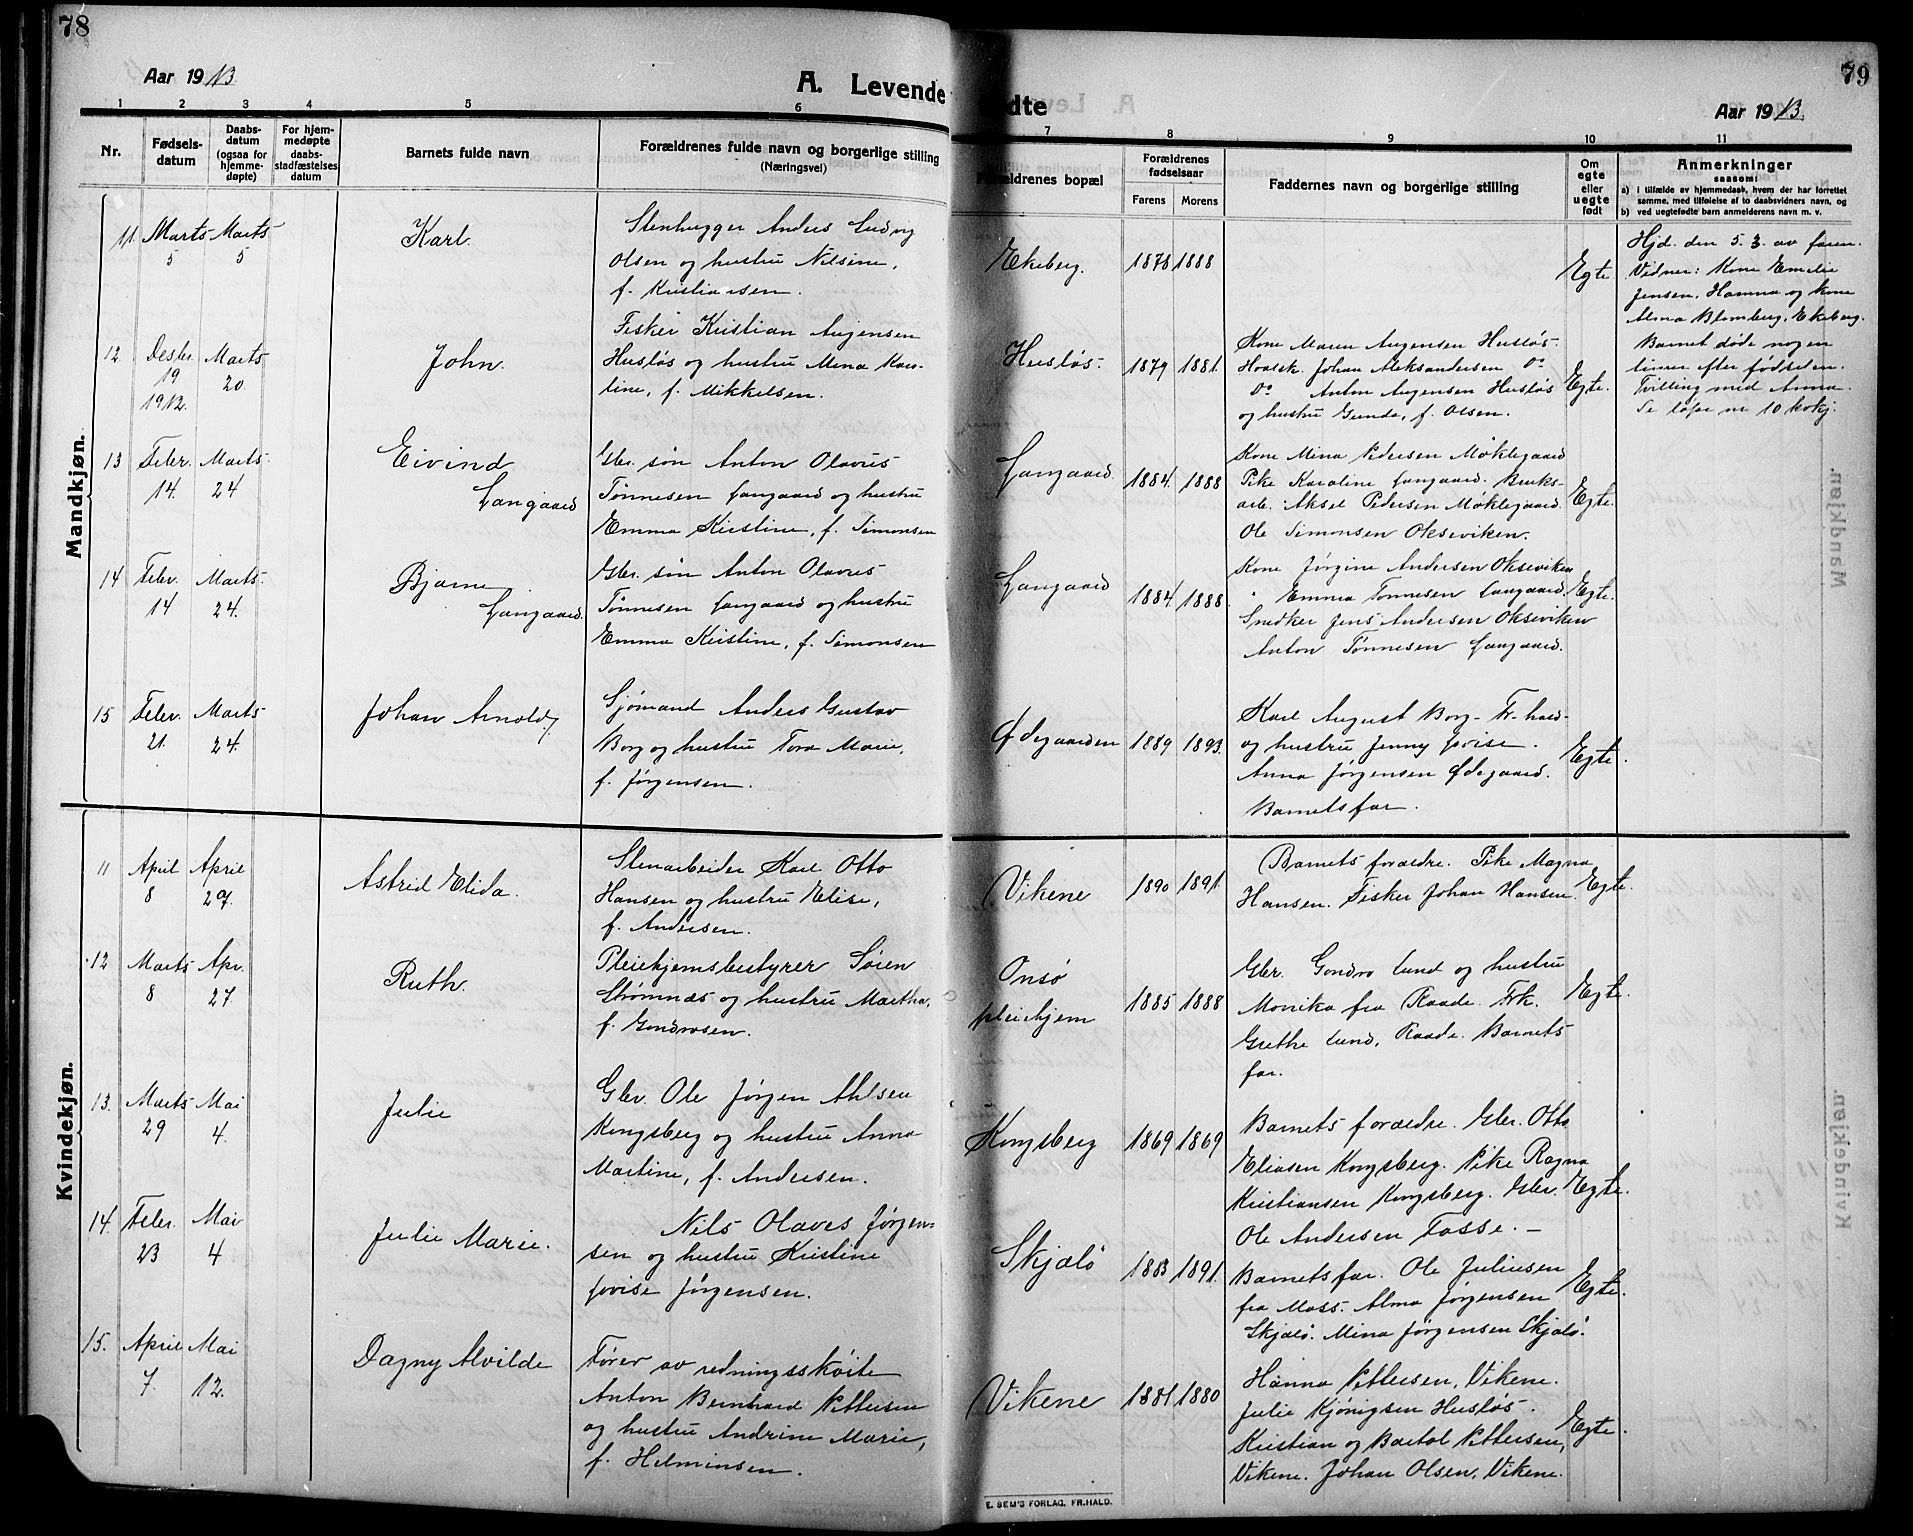 78
Aar 1913
A. Levende
1 2 3 4 5 6
Nr.
Fødsels-
datum
Daabs-
datum
(ogsaa for
hjemme-
døpte)
For hjem-
medøpte
daabs-
stadfæstelses
datum
Barnets fulde navn
Forældrenes fulde navn og borgerlige stilling
(Næringsvei)
Mandkjøn.
11. Marts 5 Marts 5
Karl.
Stenhugger Anders Ludvig
Olsen og hustru Nilsine,
f. Kristiansen.
12 Desbr. 19 1912. Marts 20
John.
Fisker Kristian Augensen
Husløs og hustru Mina Karo-
line, f. Mikkelsen.
13 Febr. 14. Marts 24
Eivind
Langaard
Gbr. søn Anton Olavus
Tønnesen Langaard og hustru
Emma Kristine, f. Simonsen
14 Febr. 14 Marts 24.
Bjarne
Langaard.
Gbr. søn Anton Olavus
Tønnesen Langaard og hustru
Emma Kristine, f. Simonsen
15 Febr. 21. Marts 24.
Johan Arnold
Sjømand Anders Gustav
Borg og hustru Tora Marie,
f. Jørgensen.
Kvindekjøn.
11 April 8 April 27.
Astrid Elida.
Stenarbeider Karl Otto
Hansen og hustru Elise,
f. Andersen.
12 Marts 8 Apr. 27
Ruth.
Pleiehjemsbestyrer Søren
Strømnæs og hustru Martha,
f. Gondrosen.
13. Marts 29 Mai 4.
Julie
Gbr. Ole Jørgen Ahlsen
Kongsberg og hustru Anna
Martine, f. Andersen.
14. Febr. 23 Mai 4
Julie Marie.
Nils Olaves Jørgen=
sen og hustru Kristine
Lovise Jørgensen.
15. April 7. Mai 12.
Dagny Alvilde
Fører av redningsskøite
Anton Bernhard Pettersen
og hustru Andrine Marie,
f. Helminsen.
79
Aar 1913.
dte
7 8 9 10 11
Forældrenes bopæl
Forældrenes
fødselsaar
Farens Morens
Faddernes navn og borgerlige stilling
Om
egte
eller
uegte
født
Anmerkninger
saasom:
a) i tilfælde av hjemmedaab, hvem der har forrettet
samme, med tilføielse af to daabsvidners navn, og
b) ved uegtefødte barn anmelderens navn m. v.
Ekeberg. 1878 1888
Egte
Hjd. den 5. 3. av faren.
Vidner: Kone Emelie
Jensen, Hamna og kone
Alma Blomberg, Ekeberg.
Barnet døde nogen
timer efter fødselen.
Tvilling med Anna.
Se løpe nr 10 kvkj.
Husløs. 1879 1881.
Kone Maren Augensen Husløs.
Hvalsk. Johan Aleksandersen Do
Do Anton Augensen Husløs
og hustru Gunda, f. Olsen.
Egte.
Langaard 1884. 1888
Kone Mina Pedersen Møklegaard
Pike Karoline Langaard. Bruks-
arb. Aksel Pedersen Møklegaard.
Ole Simonsen Okseviken.
Egte.
Langaard 1884. 1888.
Kone Jørgine Andersen Okseviken
" Emma Tønnesen Langaard.
Snedker Jens Andersen Okseviken
Anton Tønnesen Langaard.
Egte.
Ødegaarden 1889 1893.
Karl August Borg - Fr.hald-
og hustru Jenny Lovise.
Anna Jørgensen Ødegaard.
Barnets far.
Egte.
Vikene 1890 1891.
Barnets forældre. Pike Magna
Hansen. Fisker Johan Hansen.
Egte.
Onsø
pleiehjem 1885 1888
Gbr. Gondro Lund og hustru
Monika fra Raade. Frk.
Grethe Lund, Raade. Barnets
far.
Egte.
Kongsberg 1869 1869
Barnets forældre. Gbr. Otto
Eliasen Kongsberg. Pike Ragna
Kristiansen Kongsberg. Gbr.
Ole Andersen Fosse. —
Egte.
Skjælø 1883 1891.
Barnets far. Ole Juliusen
fra Moss. Alma Jørgensen
Skjælø. Mina Jørgensen Skjælø.
Egte.
Vikene 1881 1880
Hanna Pettersen, Vikene.
Julie Kjønigsen Husløs.
Kristian og Bartol Pettersen,
Vikene. Johan Olsen, Vikene.
Egte.
E. SEM'S FORLAG, FR.HALD.